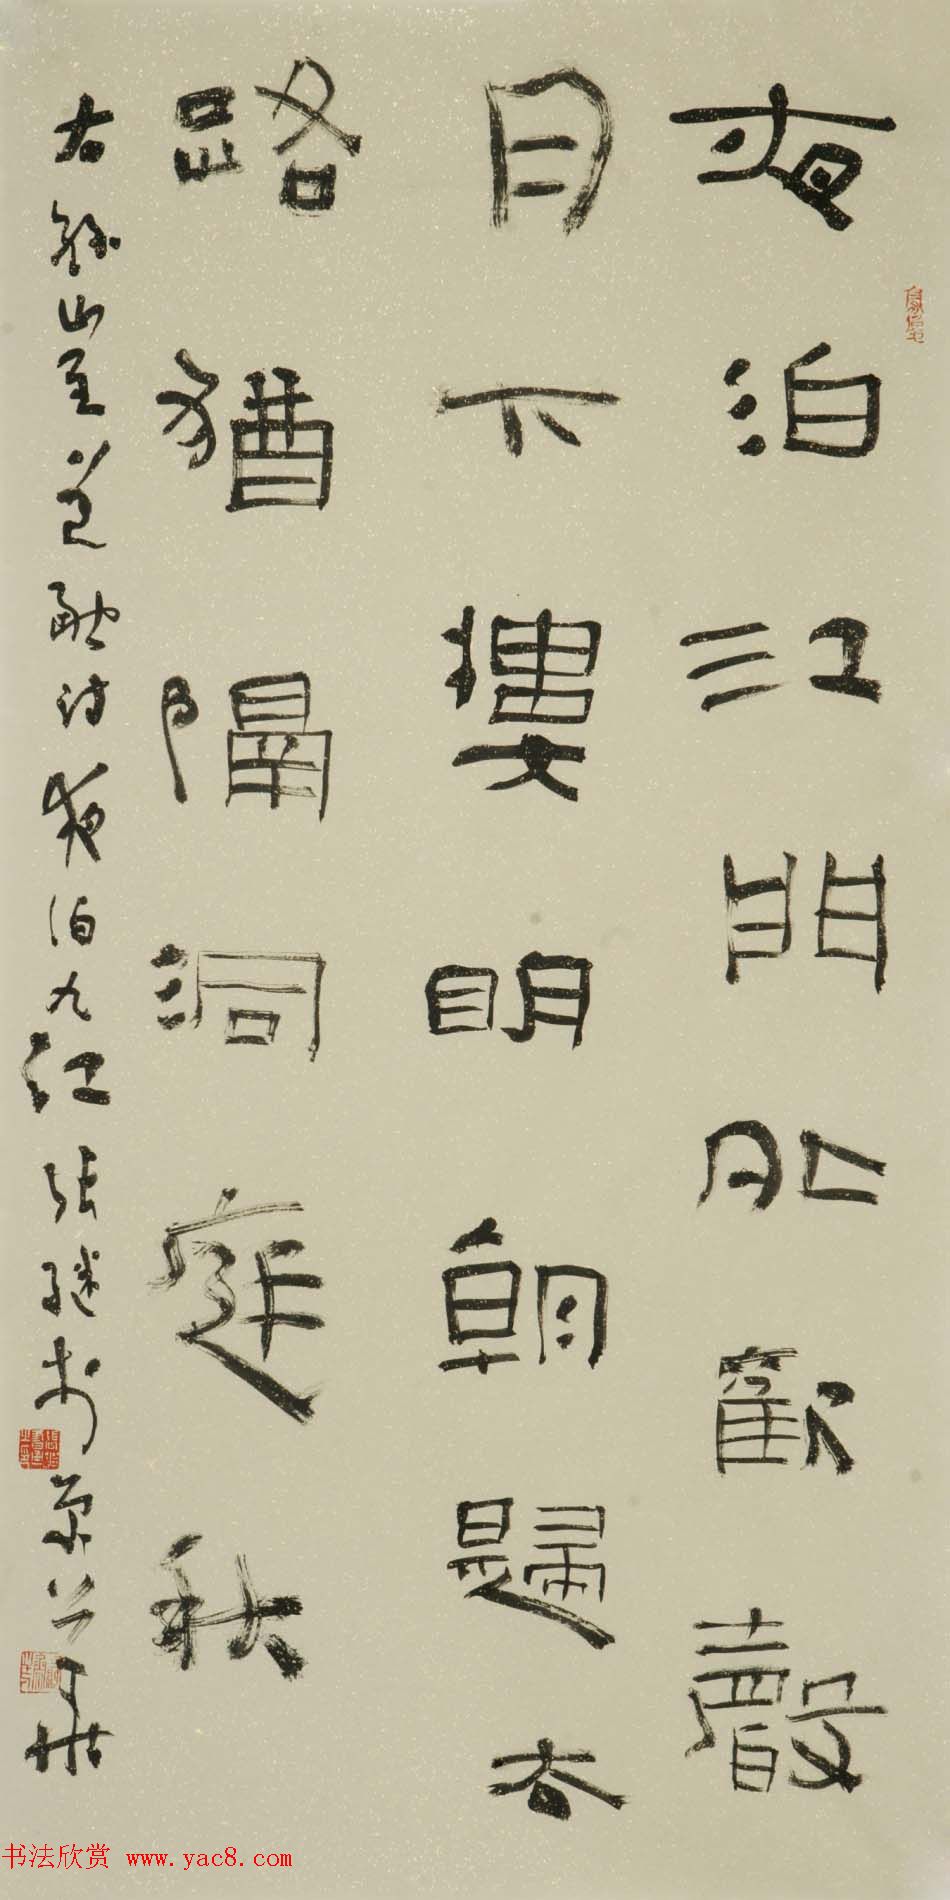 夜泊江門外歡聲
月下樓明朝歸去
路猶隔洞庭秋
右錄崔道融詩夜泊九江張繼於京
书法欣赏 www.yac8.com